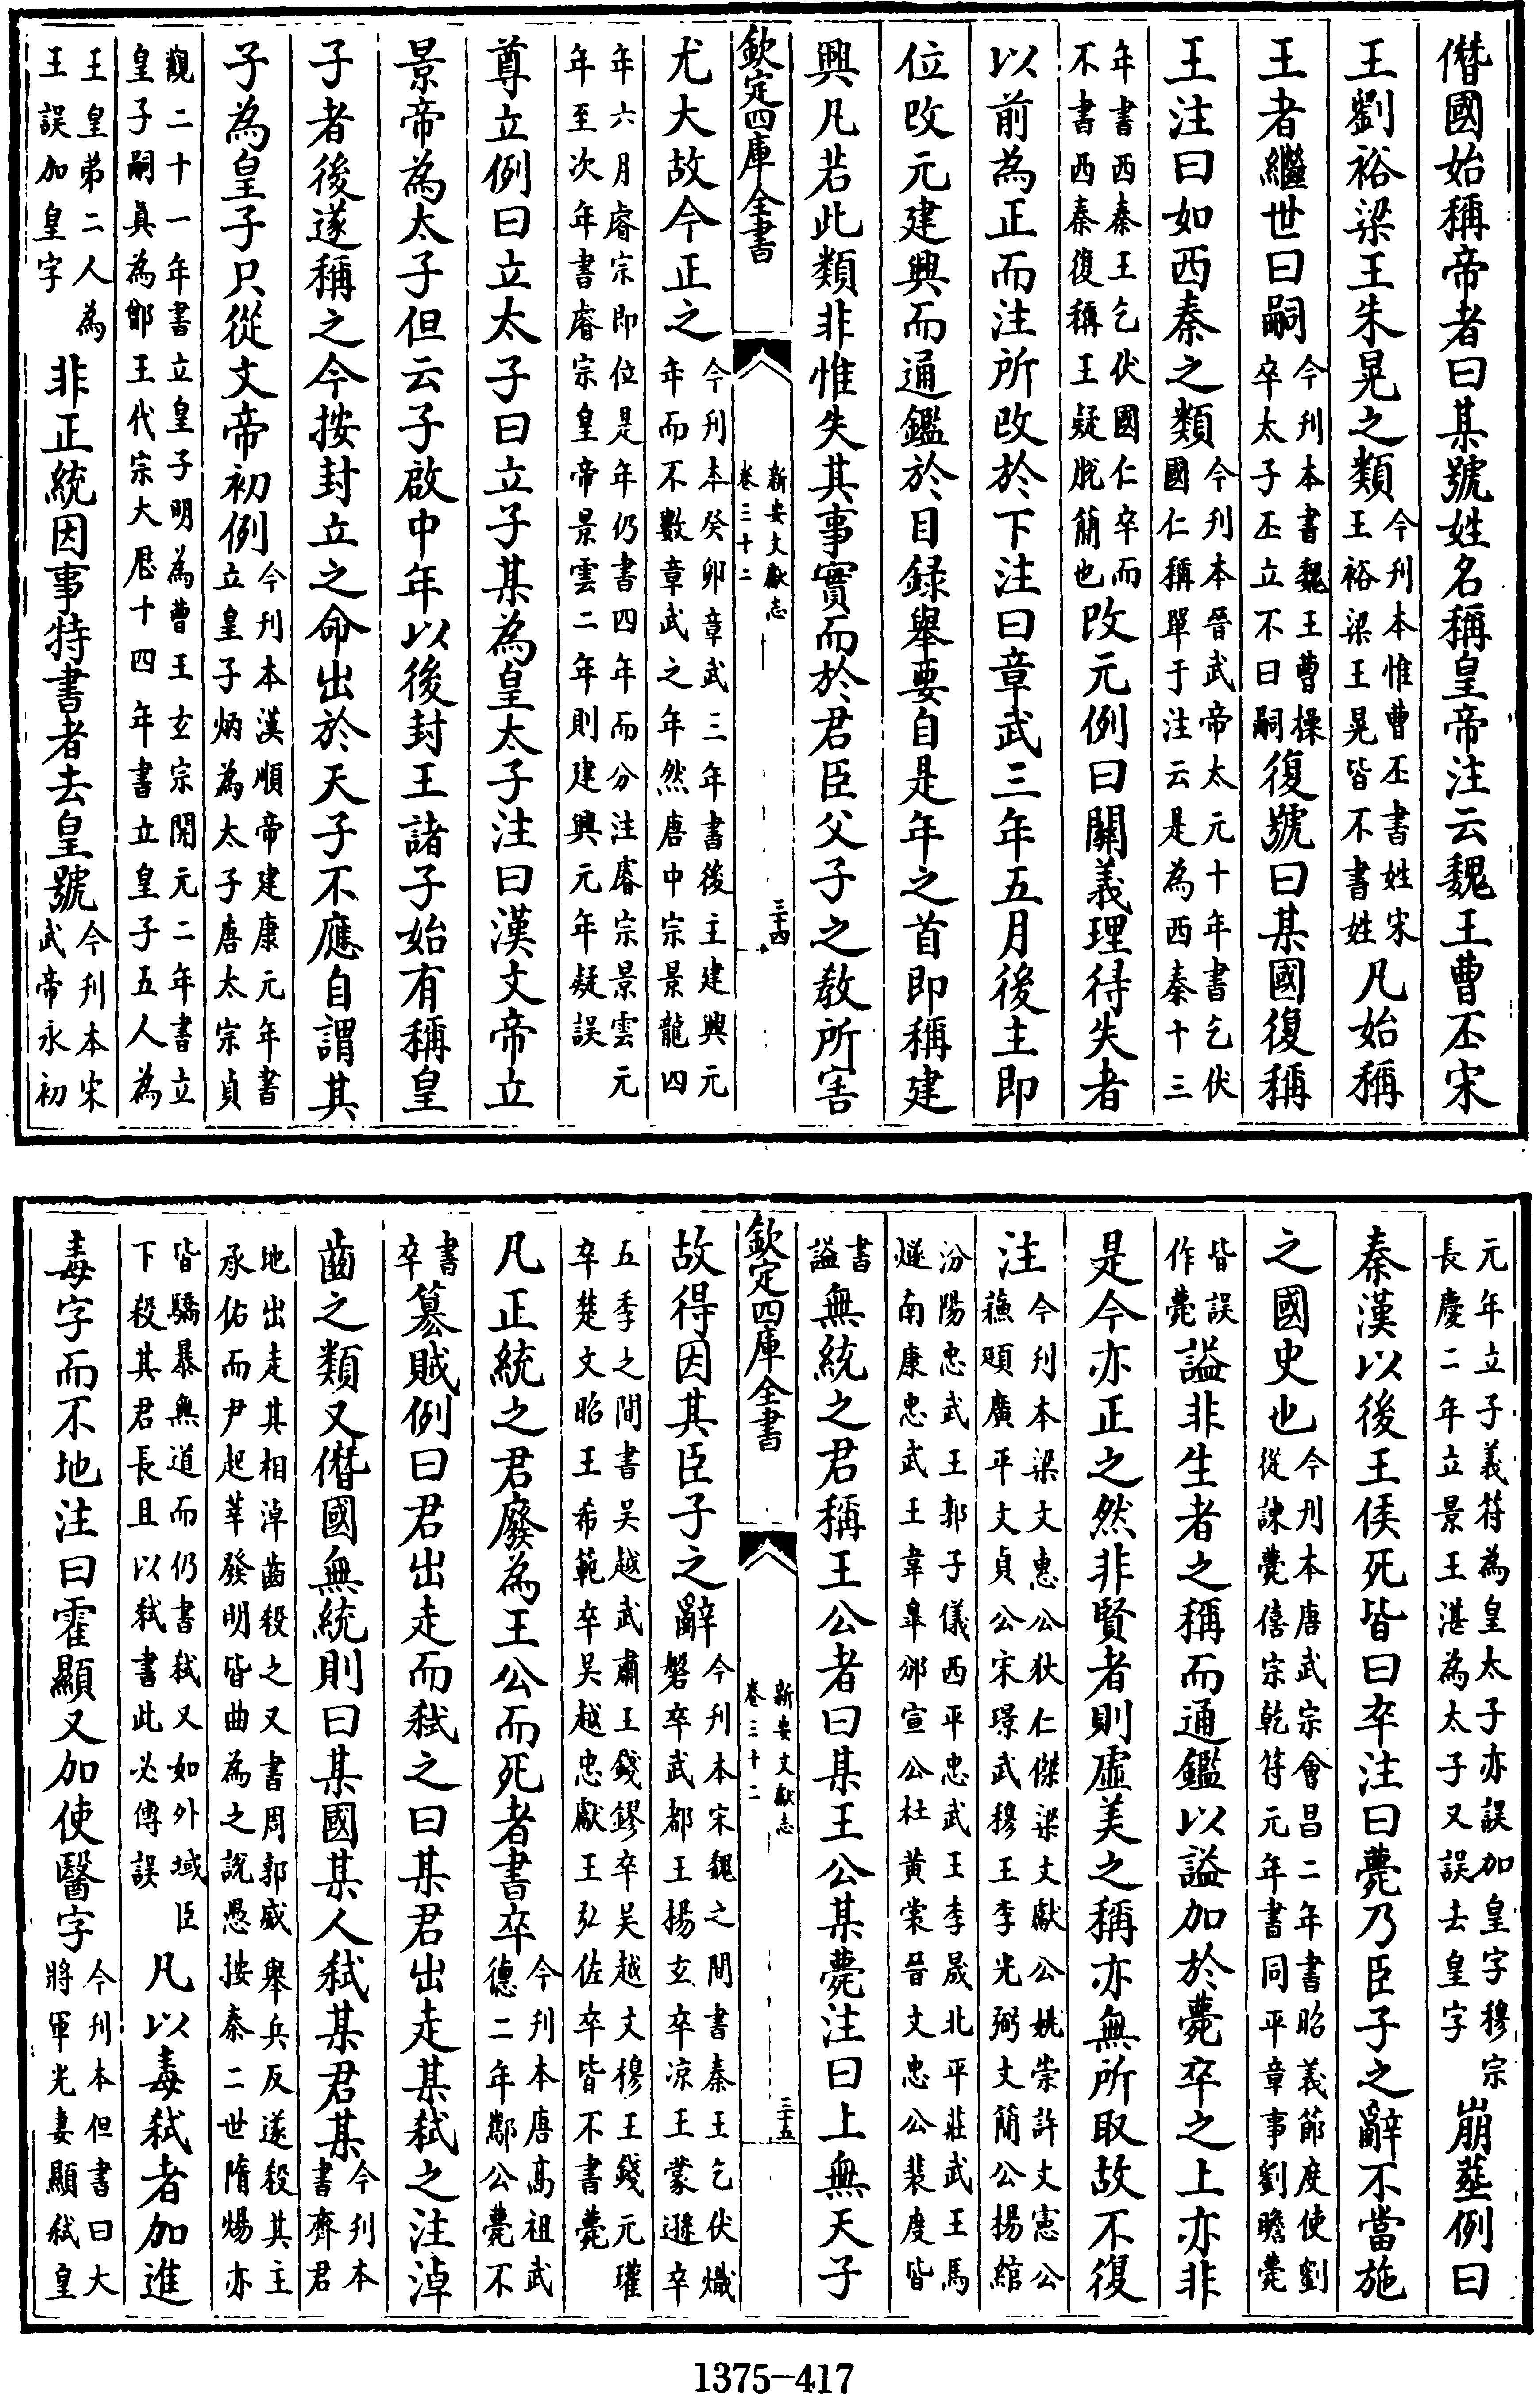 僭國始稱帝者曰某號姓名稱皇帝注云魏王曹丕宋
王劉裕梁王朱晃之類今刊本惟曹丕書姓宋王裕梁王晃皆不書姓凡始稱
王者繼世曰嗣今刊本書魏王曹操卒太子丕立不曰嗣復號曰某國復稱
王注曰如西秦之類今刊本晉武帝太元十年書乞伏國仁稱單于注云是為西秦十三
年書西秦王乞伏國仁卒而不書西秦復稱王疑脱簡也改元例曰關義理得失者
以前為正而注所改於下注曰章武三年五月後主即
位改元建興而通鑑於目録舉要自是年之首即稱建
興凡若此類非惟失其事實而於君臣父子之教所害
欽定四庫全書
新安文獻志
卷三十二
三十四
尤大故今正之今刊本癸卯章武三年書後主建興元年而不數章武之年然唐中宗景龍四
年六月睿宗即位是年仍書四年而分注睿宗景雲元年至次年書睿宗皇帝景雲二年則建興元年疑誤
尊立例曰立太子曰立子某為皇太子注曰漢文帝立
景帝為太子但云子啟中年以後封王諸子始有稱皇
子者後遂稱之今按封立之命出於天子不應自謂其
子為皇子只從文帝初例今刊本漢順帝建康元年書立皇子炳為太子唐太宗貞
觀二十一年書立皇子明為曹王玄宗開元二年書立皇子嗣真為鄫王代宗大厯十四年書立皇子五人為
王皇弟二人為王誤加皇字非正統因事特書者去皇號今刊本宋武帝永初
元年立子義符為皇太子亦誤加皇字穆宗長慶二年立景王湛為太子又誤去皇字崩葬例曰
秦漢以後王侯死皆曰卒注曰薨乃臣子之辭不當施
之國史也今刊本唐武宗會昌二年書昭義節度使劉從諫薨僖宗乾符元年書同平章事劉瞻薨
皆誤作薨諡非生者之稱而通鑑以諡加於薨卒之上亦非
是今亦正之然非賢者則虛美之稱亦無所取故不復
注今刊本梁文惠公狄仁傑梁文獻公姚崇許文憲公蘓頲廣平文貞公宋璟武穆王李光弼文簡公揚綰
汾陽忠武王郭子儀西平忠武王李晟北平莊武王馬燧南康忠武王韋臯邠宣公杜黄裳晉文忠公裴度皆
書諡無統之君稱王公者曰某王公某薨注曰上無天子
欽定四庫全書
新安文獻志
卷三十二
三十五
故得因其臣子之辭今刊本宋魏之間書秦王乞伏熾磐卒武都王揚玄卒凉王蒙遜卒
五季之間書吴越武肅王錢鏐卒吴越文穆王錢元瓘卒楚文昭王希範卒吴越忠獻王弘佐卒皆不書薨
凡正統之君廢為王公而死者書卒今刊本唐高祖武德二年酅公薨不
書卒簒賊例曰君出走而弑之曰某君出走某弑之注淖
齒之類又僭國無統則曰某國某人弑某君某今刊本書齊君
地出走其相淖齒殺之又書周郭威舉兵反遂殺其主承佑而尹起莘發明皆曲為之說愚按秦二世隋煬亦
皆驕暴無道而仍書弑又如外域臣下殺其君長且以弑書此必傳誤凡以毒弑者加進
毒字而不地注曰霍顯又加使醫字今刊本但書曰大將軍光妻顯弑皇
1375-417